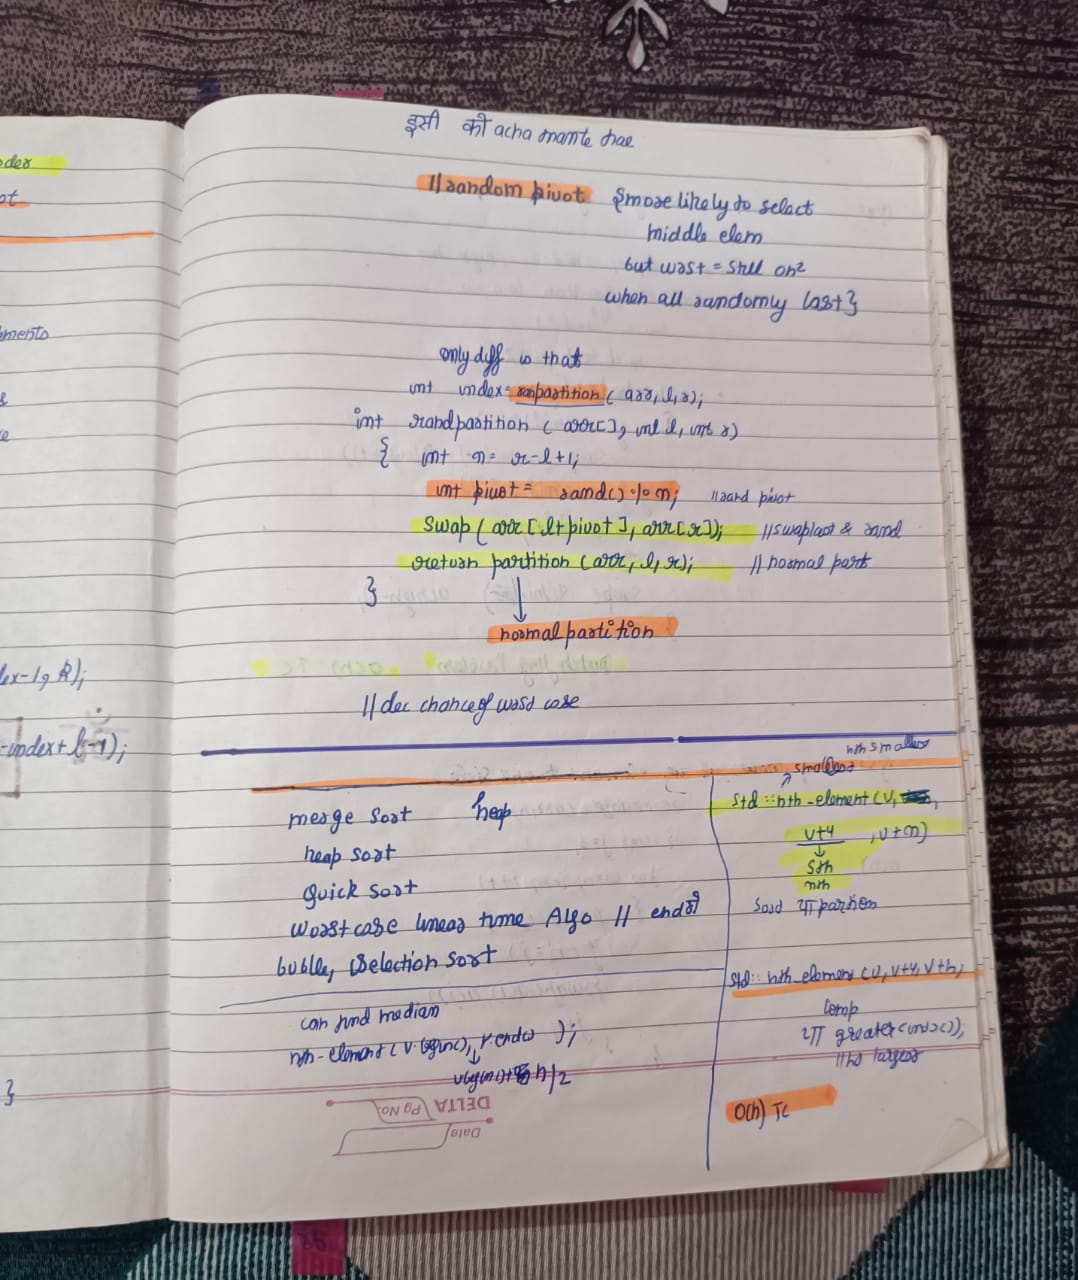 der
ot
ements
ex-1, k);
-index + l-1);
}
इसी को acha mante hae
//random pivot {more likely to select
middle elem
but worst = still on²
when all randomly last}
only diff is that
int index = ranpartition (arr, l, r);
int randpartition (arr[], int l, int r)
{ int n = r-l+1;
int pivot = rand() % n; //rand pivot
Swap (arr[l+pivot], arr[r]); //swap last & rand
return partition (arr, l, r); // normal part
}
normal partition
//dec chance of worst case
merge sort heap
heap sort
Quick sort
worst case linear time Algo //
bubble, selection sort
can find median
nth-element (v.begin(), v.end() );
v.begin()+ n/2
nth smallest
smallest
std::nth-element (v,
v+4 , v+n)
5th
nth
std::nth_element (v, v+4, v+n,
comp
greater<int>());
largest
O(n) TC
DELTA Pg No.
Date